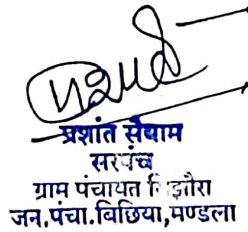 प्रशांत सैयाम
सरपंच
ग्राम पंचायत
जन.पंचा.बिछिया,मण्डला